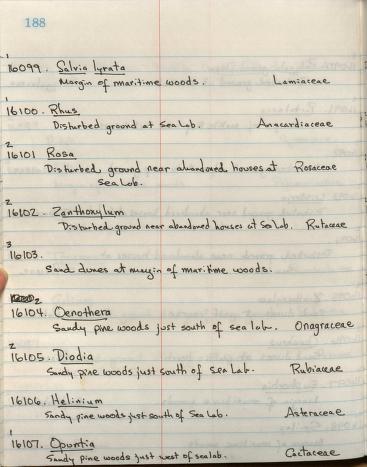 188
1
16099. Salvia lyrata
Margin of maritime woods. Lamiaceae
1
16100. Rhus
Disturbed ground at Sea Lab. Anacardiaceae
2
16101 Rosa
Disturbed ground near abandoned houses at Rosaceae
Sea Lob.
2
16102. Zanthoxylum
Disturbed ground near abandoned houses at Sea Lab. Rutaceae
3
16103.
Sand dunes at margin of maritime woods.
2
16104. Oenothera
Sandy pine woods just south of sea lab. Onagraceae
2
16105. Diodia
Sandy pine woods just south of Sea Lab. Rubiaceae
16106. Helinium
Sandy pine woods just south of Sea Lab. Asteraceae
1
16107. Opuntia
Sandy pine woods just west of sealab. Cactaceae